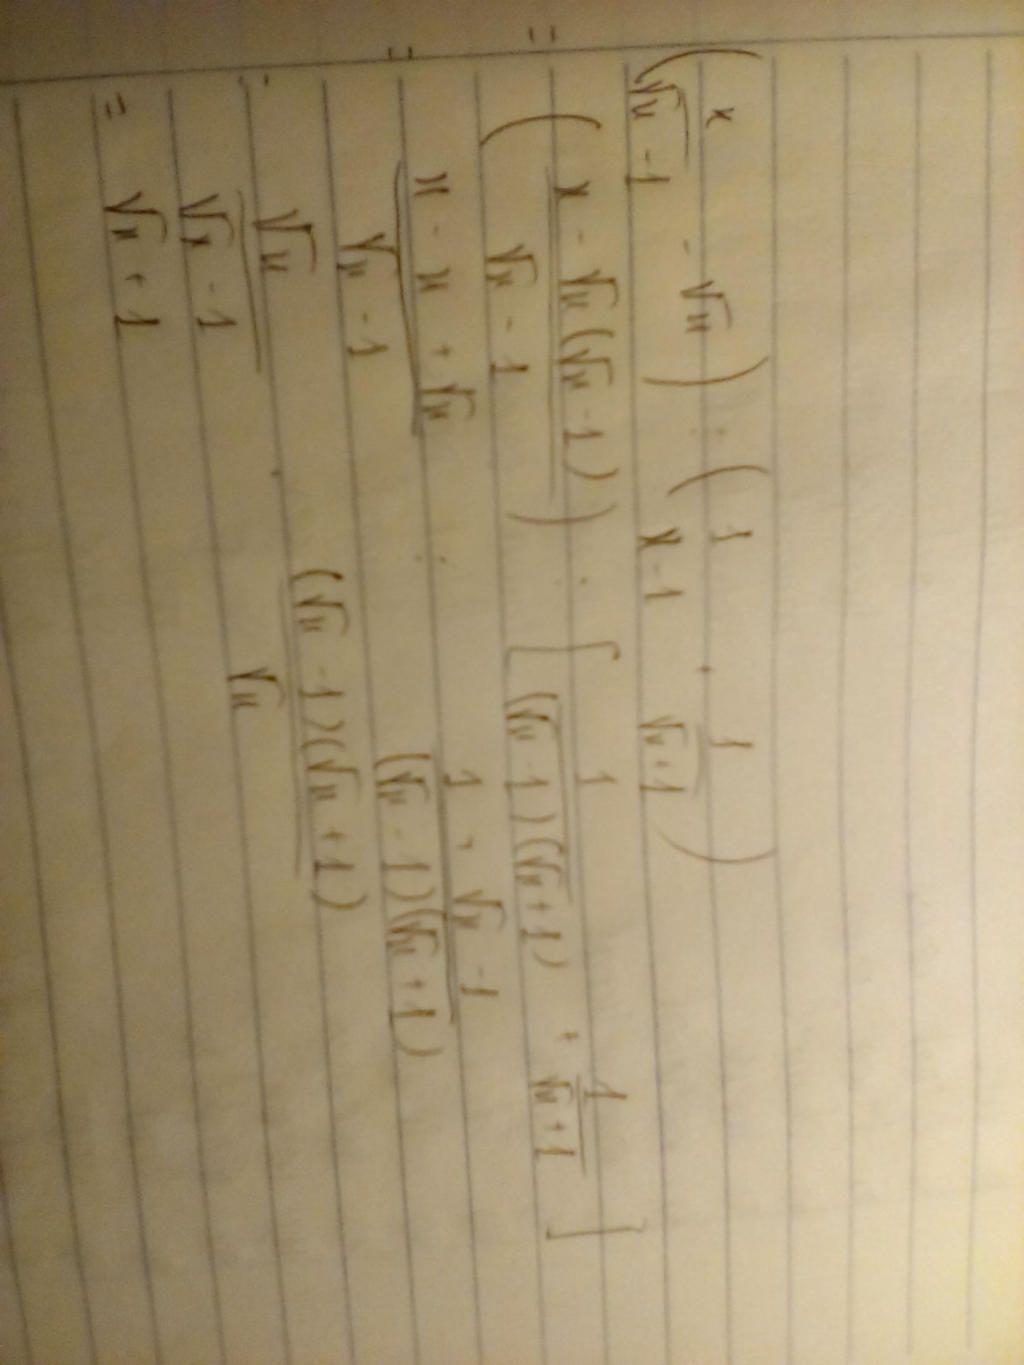 (x/(√x - 1) - √x) : (1/(x - 1) + 1/(√x + 1))
= ((x - √x(√x - 1))/(√x - 1)) : [1/((√x - 1)(√x + 1)) + 1/(√x + 1)]
= (x - x + √x)/(√x - 1) : (1 + √x - 1)/((√x - 1)(√x + 1))
= √x/(√x - 1) . ((√x - 1)(√x + 1))/√x
= √x + 1